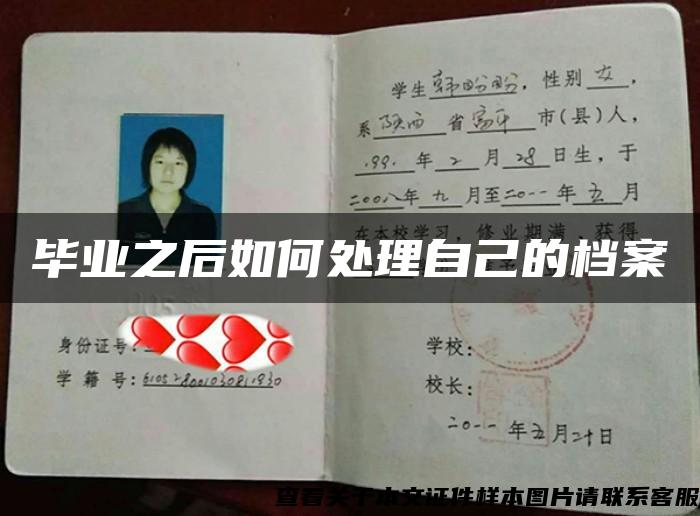 学生韩盼盼，性别女，
系陕西省富平市(县)人，
1991年2月28日生，于
二〇〇八年九月至二〇一一年五月
在本校学习，修业期满，获得
毕业之后如何处理自己的档案
身份证号：
学籍号：
学校：
校长：
二〇一一年五月二十日
查看关于本文证件样本图片请联系客服